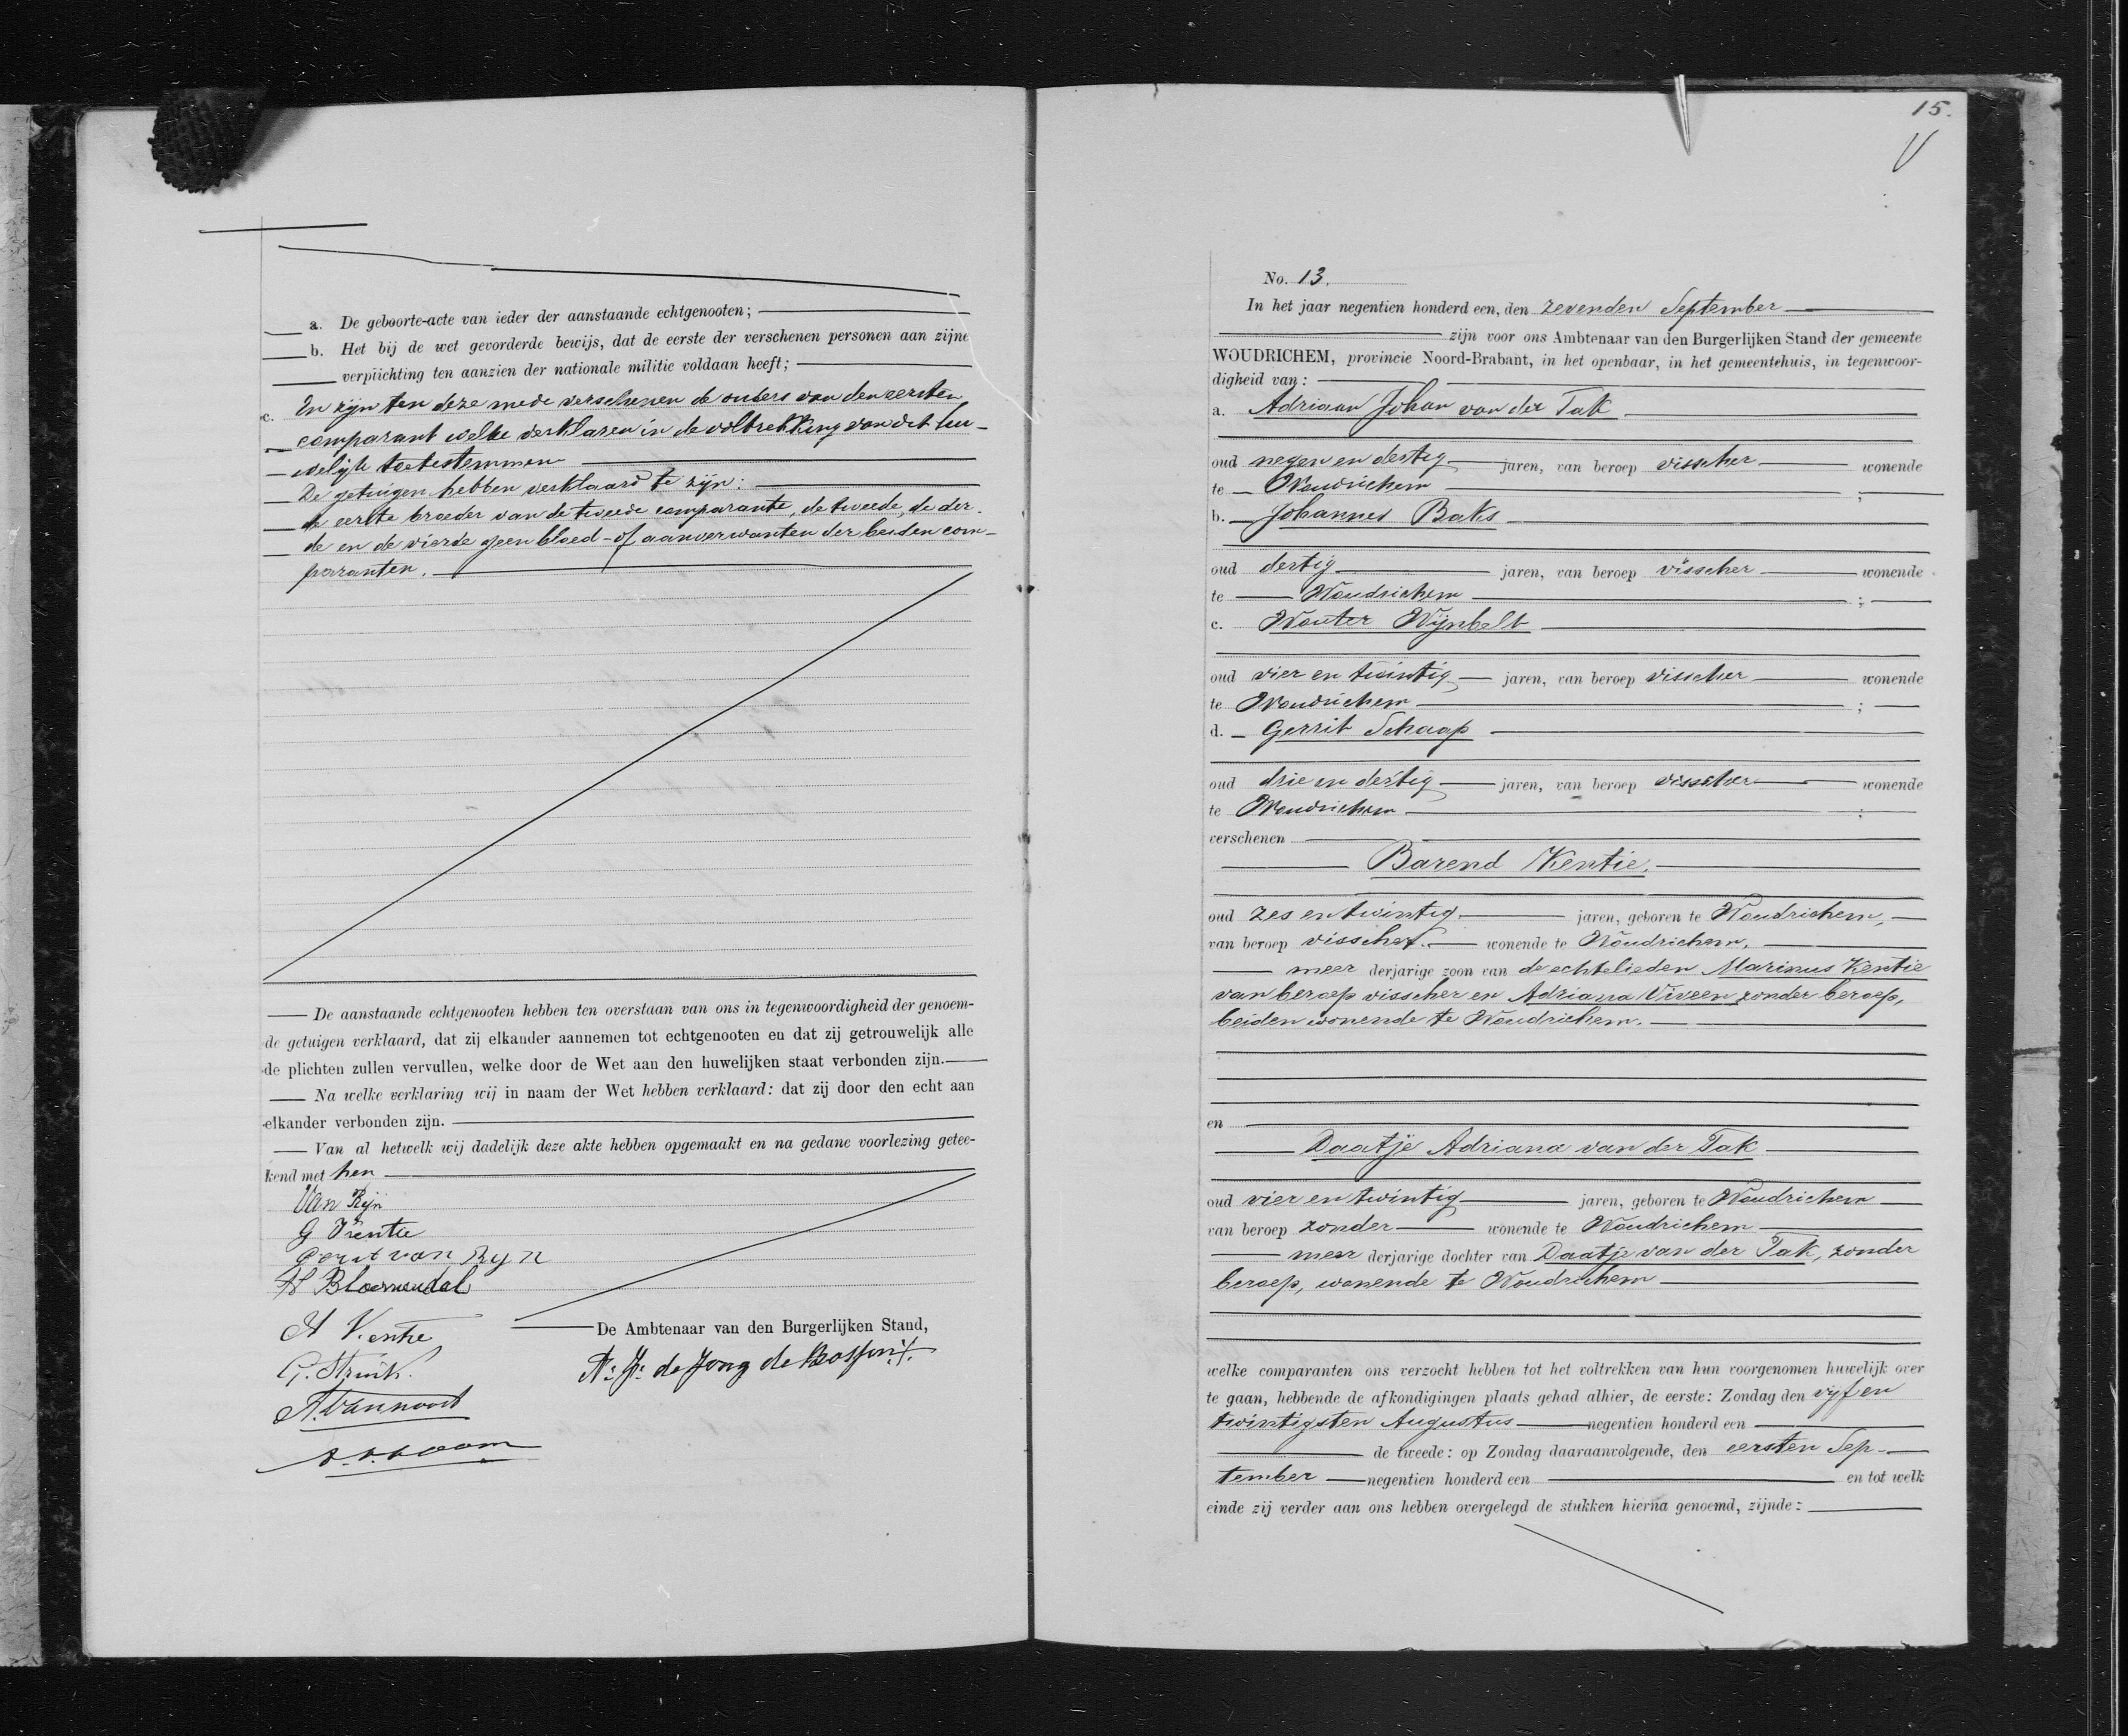 a. De geboorte-acte van ieder der aanstaande echtgenooten;
b. Het bij de wet gevorderde bewijs, dat de eerste der verschenen personen aan zijne
verplichting ten aanzien der nationale militie voldaan heeft;
c. En zijn ten deze mede verschenen de ouders van den eersten
comparant welke verklaren in de voltrekking van dit hu-
welijk toetestemmen
De getuigen hebben verklaard te zijn:
de eerste broeder van de tweede comparante, de tweede, de der-
de en de vierde geen bloed- of aanverwanten der beiden com-
paranten.
De aanstaande echtgenooten hebben ten overstaan van ons in tegenwoordigheid der genoem-
de getuigen verklaard, dat zij elkander aannemen tot echtgenooten en dat zij getrouwelijk alle
de plichten zullen vervullen, welke door de Wet aan den huwelijken staat verbonden zijn.
Na welke verklaring wij in naam der Wet hebben verklaard: dat zij door den echt aan
elkander verbonden zijn.
Van al hetwelk wij dadelijk deze akte hebben opgemaakt en na gedane voorlezing getee-
kend met hen
Van Rijn
G
van Ryn
Bloemendal
De Ambtenaar van den Burgerlijken Stand,
G. Struik.
de Jong de
A. van noort
15.
V
No. 13.
In het jaar negentien honderd een, den zevenden September
zijn voor ons Ambtenaar van den Burgerlijken Stand der gemeente
WOUDRICHEM, provincie Noord-Brabant, in het openbaar, in het gemeentehuis, in tegenwoor-
digheid van:
a. Adriaan Johan van der Tak
oud negen en dertig jaren, van beroep visscher wonende
te Woudrichem ;
b. Johannes Baks
oud dertig jaren, van beroep visscher wonende
te Woudrichem ;
c. Wouter Wijnbelt
oud vier en twintig jaren, van beroep visscher wonende
te Woudrichem ;
d. Gerrit Schaap
oud drie en dertig jaren, van beroep visscher wonende
te Woudrichem ;
verschenen
Barend Kentie.
oud zes en twintig jaren, geboren te Woudrichem,
van beroep visscher. wonende te Woudrichem,
meer derjarige zoon van de echtelieden Marinus Kentie
van beroep visscher en Adriana Viveen zonder beroep,
beiden wonende te Woudrichem.
en
Daatje Adriana van der Tak
oud vier en twintig jaren, geboren te Woudrichem
van beroep zonder wonende te Woudrichem
meer derjarige dochter van Daatje van der Tak, zonder
beroep, wonende te Woudrichem
welke comparanten ons verzocht hebben tot het voltrekken van hun voorgenomen huwelijk over
te gaan, hebbende de afkondigingen plaats gehad alhier, de eerste: Zondag den vijf en
twintigsten Augustus negentien honderd een
de tweede: op Zondag daaraanvolgende, den eersten Sep-
tember negentien honderd een en tot welk
einde zij verder aan ons hebben overgelegd de stukken hierna genoemd, zijnde: